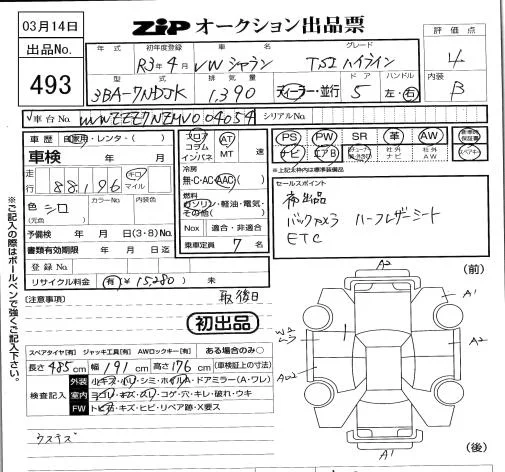 03月14日
ZIP オークション出品票
評価点
4
内装
B
出品No.
493
年式 初年度登録 車名 グレード
R3年4月 VW シャラン TSI ハイライン
型式 排気量 ドア ハンドル
3BA-7NDJK 1,390 ディーラー・並行 5 左・右
車台No. WVWZZZ7NZMV004054 シリアルNo.
車歴 自家用・レンタ・( )
車検 年 月
走行 88,196 キロ マイル
色 シロ (元色) カラーNo. 内装色
予備検 年 月 日(3・8)No.
書類有効期限 年 月 日迄
登録No.
リサイクル料金 (有)¥15,280) 未
フロア コラム インパネ AT MT 速
冷房 無・C・AC・AAC( )
燃料 ガソリン・軽油・電気・その他( )
Nox 適合・非適合
乗車定員 7 名
PS PW SR 革 AW
ナビ エアB 社外ナビ 社外AW
※上記太枠内は標準装備品
セールスポイント
初出品
バックカメラ ハーフレザーシート
ETC
(注意事項)
初出品
スペアタイヤ[有] ジャッキ工具[有] AWロックキー[有] ある場合のみ○
長さ485cm 幅191cm 高さ176cm (車検証上の寸法)
検査記入
外装 小キズ・小凹・シミ・ホイルA・ドアミラー(A・ワレ)
室内 ヨゴレ・キズ・スリ・コゲ・穴・キレ・破れ・ウキ
FW トビ石・キズ・ヒビ・リペア跡・X要ス
ウスキズ
※ご記入の際はボールペンで強くご記入下さい。
(前)
A2
A1
A2
A1
(後)